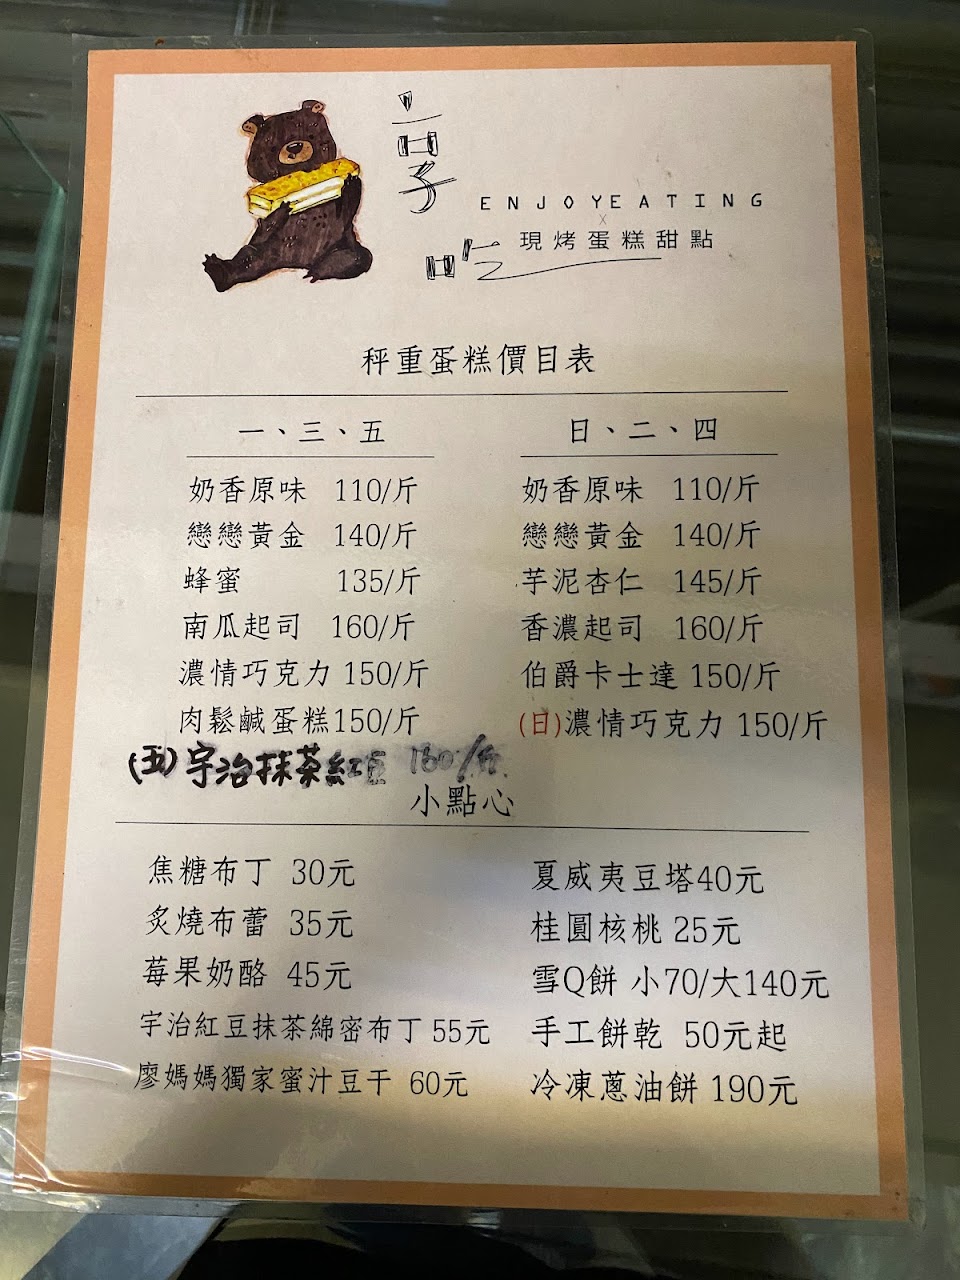 享吃
ENJOYEATING
X
現烤蛋糕甜點
秤重蛋糕價目表
一、三、五
奶香原味 110/斤
戀戀黃金 140/斤
蜂蜜 135/斤
南瓜起司 160/斤
濃情巧克力 150/斤
肉鬆鹹蛋糕150/斤
(五)宇治抹茶紅豆 160/斤
日、二、四
奶香原味 110/斤
戀戀黃金 140/斤
芋泥杏仁 145/斤
香濃起司 160/斤
伯爵卡士達 150/斤
(日)濃情巧克力 150/斤
小點心
焦糖布丁 30元
炙燒布蕾 35元
莓果奶酪 45元
宇治紅豆抹茶綿密布丁 55元
廖媽媽獨家蜜汁豆干 60元
夏威夷豆塔40元
桂圓核桃 25元
雪Q餅 小70/大140元
手工餅乾 50元起
冷凍蔥油餅 190元